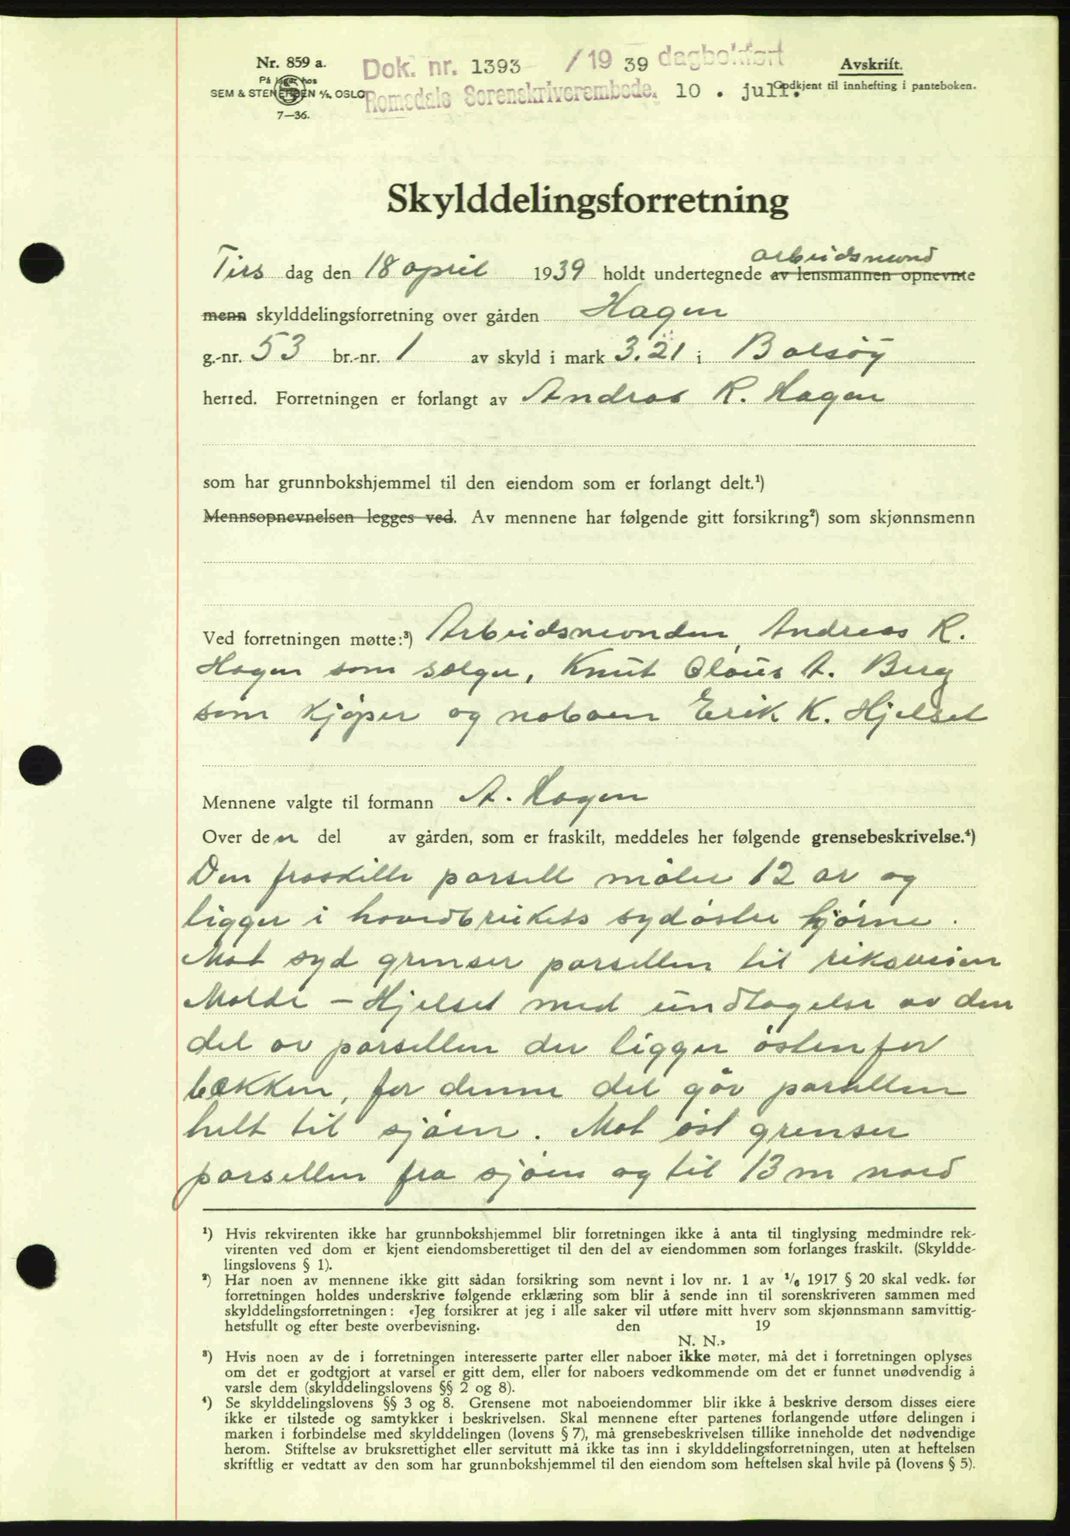 Nr. 859 a.
På lager hos
SEM & STENERSEN A/S, OSLO
7—36.
Dok. nr. 1393 / 19 39 dagbokført
Romsdals Sorenskriverembede, 10 . juli.
Avskrift.
Godkjent til innhefting i panteboken.
Skylddelingsforretning
arbeidsmend
Tirs dag den 18 april 1939 holdt undertegnede av lensmannen opnevnte
menn skylddelingsforretning over gården Hagen
g.-nr. 53 br.-nr. 1 av skyld i mark 3.21 i Bolsøy
herred. Forretningen er forlangt av Andreas R. Hagen
som har grunnbokshjemmel til den eiendom som er forlangt delt.¹)
Mennsopnevnelsen legges ved. Av mennene har følgende gitt forsikring²) som skjønnsmenn
Ved forretningen møtte:³) Arbeidsmenden, Andreas R.
Hagen som selger, Knut Olaus A. Berg
som kjøper og naboen Erik K. Hjelset
Mennene valgte til formann A. Hagen
Over den del av gården, som er fraskilt, meddeles her følgende grensebeskrivelse.⁴)
Den fraskilte parsell måler 12 ar og
ligger i hovedbrukets sydøstre hjørne.
Mot syd grenser parsellen til riksveien
Molde – Hjelset med undtagelse av den
del av parsellen der ligger østenfor
bækken, for denne del går parsellen
helt til sjøen. Mot øst grenser
parsellen fra sjøen og til 13 m nord
¹) Hvis rekvirenten ikke har grunnbokshjemmel blir forretningen ikke å anta til tinglysing medmindre rek-
virenten ved dom er kjent eiendomsberettiget til den del av eiendommen som forlanges fraskilt. (Skyldde-
lingslovens § 1).
²) Har noen av mennene ikke gitt sådan forsikring som nevnt i lov nr. 1 av ¹/₆ 1917 § 20 skal vedk. før
forretningen holdes underskrive følgende erklæring som blir å sende inn til sorenskriveren sammen med
skylddelingsforretningen: «Jeg forsikrer at jeg i alle saker vil utføre mitt hverv som skjønnsmann samvittig-
hetsfullt og efter beste overbevisning. den 19
N. N.»
³) Hvis noen av de i forretningen interesserte parter eller naboer ikke møter, må det i forretningen oplyses
om det er godtgjort at varsel er gitt dem, eller for naboers vedkommende om det er funnet unødvendig å
varsle dem (skylddelingslovens §§ 2 og 8).
⁴) Se skylddelingslovens §§ 3 og 8. Grensene mot naboeiendommer blir ikke å beskrive dersom disses eiere
ikke er tilstede og samtykker i beskrivelsen. Skal mennene efter partenes forlangende utføre delingen i
marken i forbindelse med skylddelingen (lovens § 7), må grensebeskrivelsen tillike inneholde det nødvendige
herom. Stiftelse av bruksrettighet eller servitutt må ikke tas inn i skylddelingsforretningen, uten at heftelsen
skriftlig er vedtatt av den som har grunnbokshjemmel til den eiendom som heftelsen skal hvile på (lovens § 5).